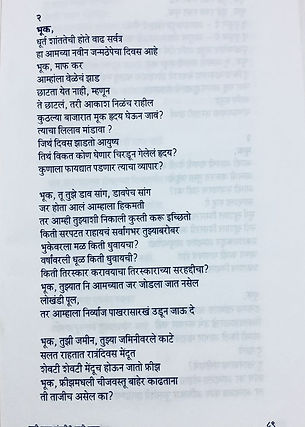 २
भूक,
धूर्त शांततेची होते वाढ सर्वत्र
हा आमच्या नवीन जन्मठेपेचा दिवस आहे
भूक, माफ कर
आम्हांला वेळेचं झाड
छाटता येत नाही, म्हणून
ते छाटलं, तरी आकाश निळंच राहील
कुठल्या बाजारात मूक हृदय घेऊन जावं?
त्याचा लिलाव मांडावा ?
जिथं दिवस झाडतो आयुष्य
तिथं विकत कोण घेणार चिरडून गेलेलं हृदय?
कुणाला फायद्यात पडणार त्याचा व्यापार?
भूक, तू तुझे डाव सांग, डावपेच सांग
जर होता आलं आम्हाला हिकमती
तर आम्ही तुझ्याशी निकाली कुस्ती करू इच्छितो
किती सरपटत राहायचं सर्वागभर तुझ्याबरोबर
भुकेवरला मळ किती धुवायचा?
वर्षांवरली धूळ किती धुवायची?
किती तिरस्कार करावयाचा तिरस्काराच्या सरहद्दीचा?
भूक, तुझ्यात नि आमच्यात जर जोडला जात नसेल
लोखंडी पूल,
तर आम्हाला निर्व्याज पाखरासारखं उडून जाऊ दे
भूक, तुझी जमीन, तुझ्या जमिनीवरले काटे
सलत राहतात रात्रंदिवस मेंदूत
शेवटी शेवटी मेंदूच होऊन जातो फ्रीझ
भूक, फ्रीझमधली चीजवस्तू बाहेर काढताना
ती ताजीच असेल का?